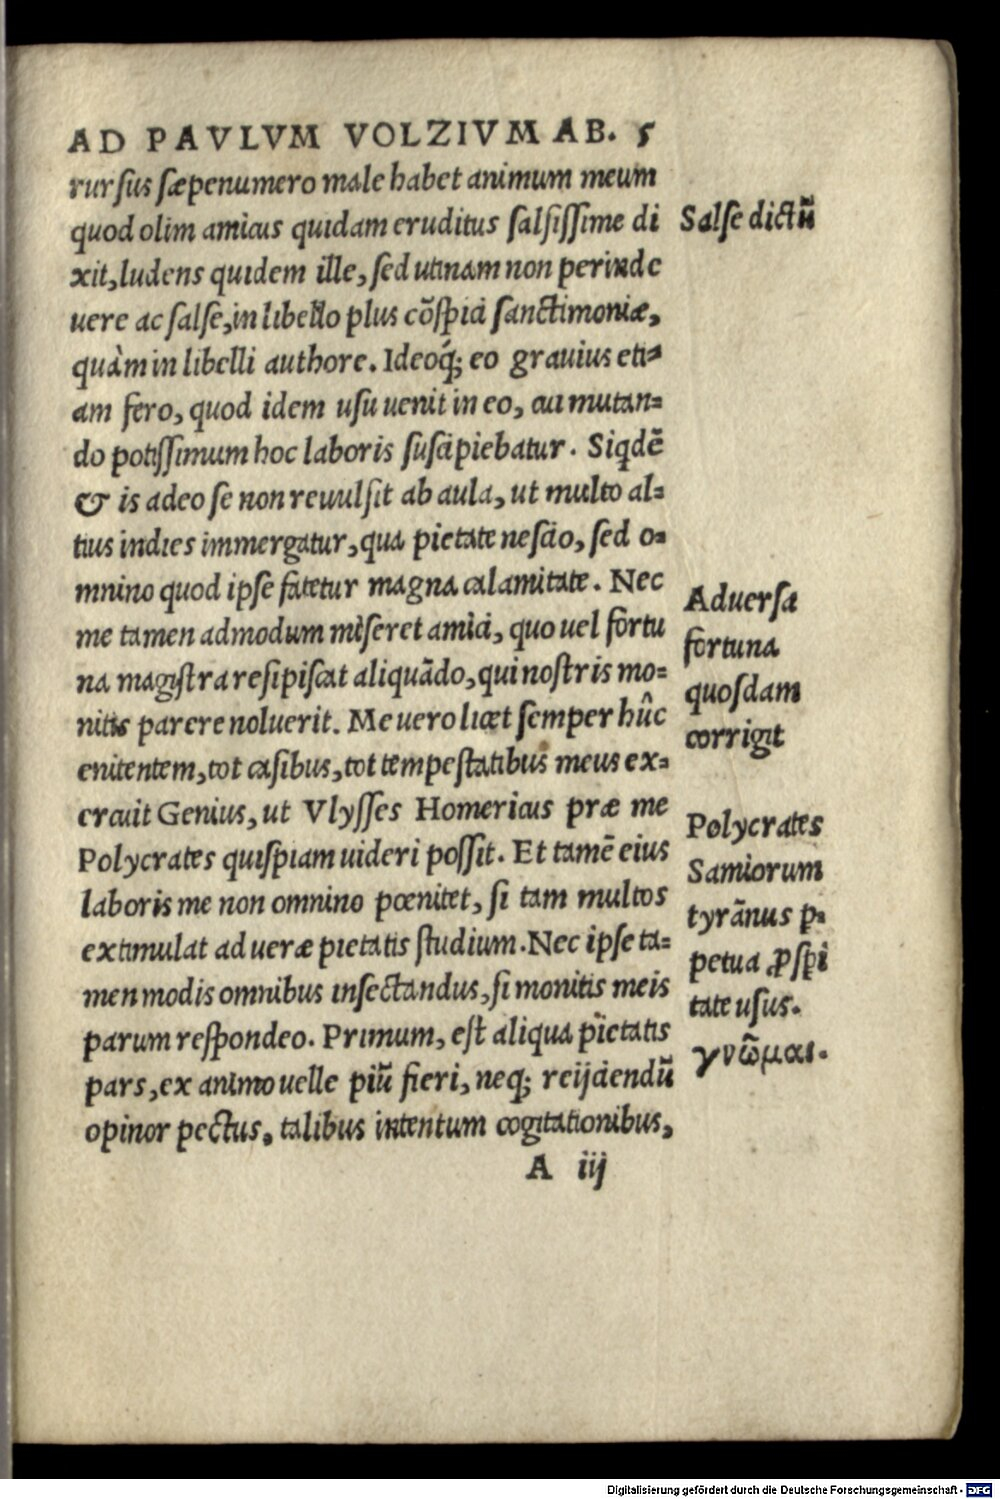 AD PAVLVM VOLZIVM AB. 5
rursus sæpenumero male habet animum meum
quod olim amicus quidam eruditus salsissime di
xit, ludens quidem ille, sed utinam non perinde
uere ac salse, in libello plus cõspici sanctimoniæ,
quàm in libelli authore. Ideoq́; eo grauius eti-
am fero, quod idem usu uenit in eo, cui mutan-
do potissimum hoc laboris suscipiebatur. Siqdẽ
& is adeo se non reuulsit ab aula, ut multo al-
tius indies immergatur, qua pietate nescio, sed o-
mnino quod ipse fatetur magna calamitate. Nec
me tamen admodum miseret amici, quo uel fortu
na magistra resipiscat aliquãdo, qui nostris mo-
nitis parere noluerit. Me uero licet semper hûc
enitentem, tot casibus, tot tempestatibus meus ex-
ercuit Genius, ut Vlysses Homericus præ me
Polycrates quispiam uideri possit. Et tamẽ eius
laboris me non omnino pœnitet, si tam multos
extimulat ad ueræ pietatis studium. Nec ipse ta-
men modis omnibus insectandus, si monitis meis
parum respondeo. Primum, est aliqua pietatis
pars, ex animo uelle piũ fieri, neq; reijciendũ
opinor pectus, talibus intentum cogitationibus,
A iij
Salse dictũ
Aduersa
fortuna
quosdam
corrigit
Polycrates
Samiorum
tyrãnus p-
petua ꝓspi
tate usus.
γνῶμαι.
Digitalisierung gefördert durch die Deutsche Forschungsgemeinschaft - DFG